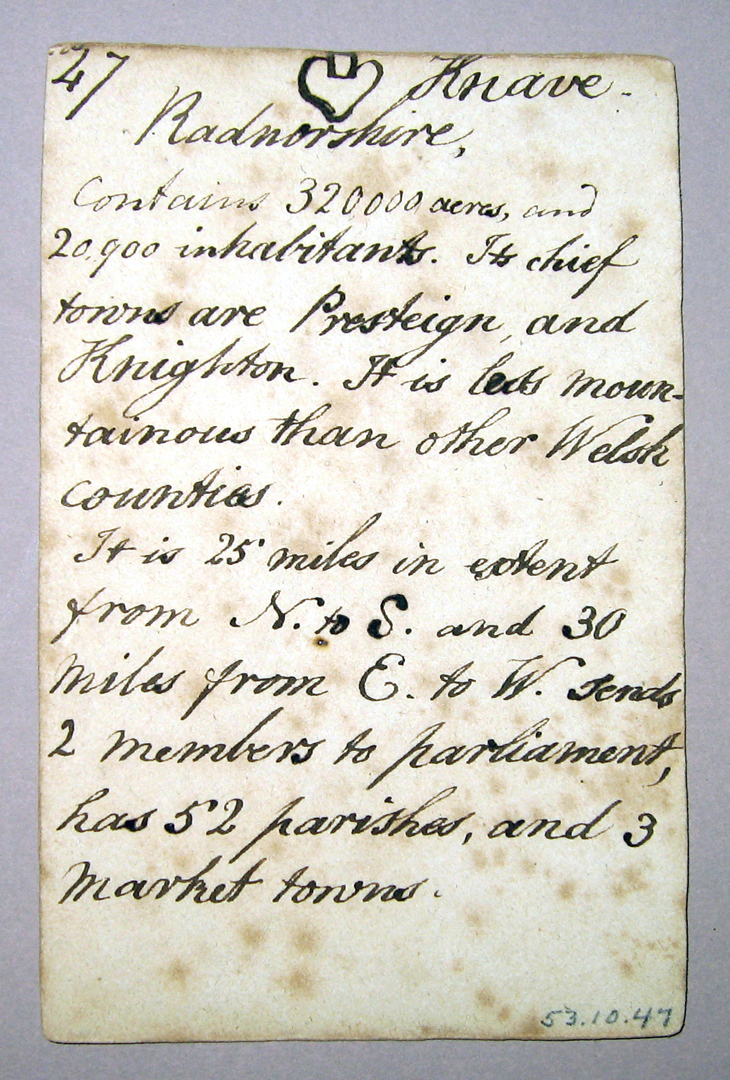 47 Knave.
Radnorshire,
Contains 320,000 acres, and
20,900 inhabitants. Its chief
towns are Presteign, and
Knighton. It is less moun-
tainous than other Welsh
counties.
It is 25 miles in extent
from N. to S. and 30
miles from E. to W. sends
2 members to parliament,
has 52 parishes, and 3
market towns.
53.10.47